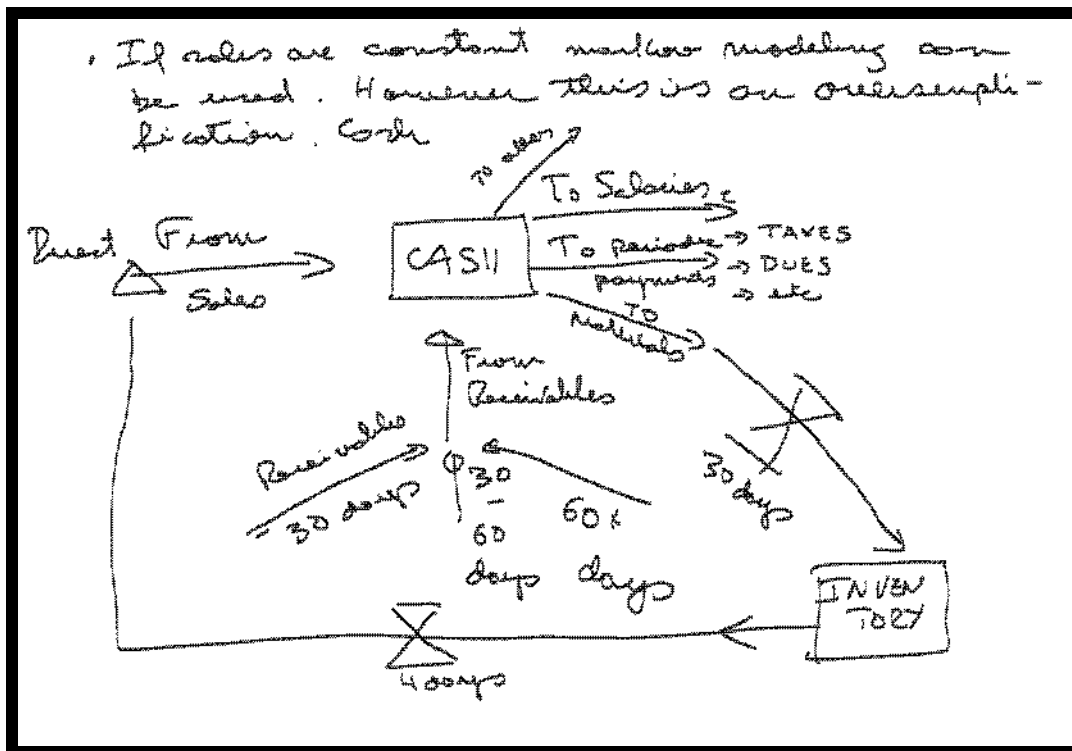 • If sales are constant markov modeling can
be used. However this is an oversimpli-
fication. Cash
To
To Salaries
Direct From
Sales
CASH
To periodic → TAXES
payments → DUES
→ etc
To
Materials
From
Receivables
Receivables
30 days
30
-
60
days
60
days
30 days
INVEN
TORY
days